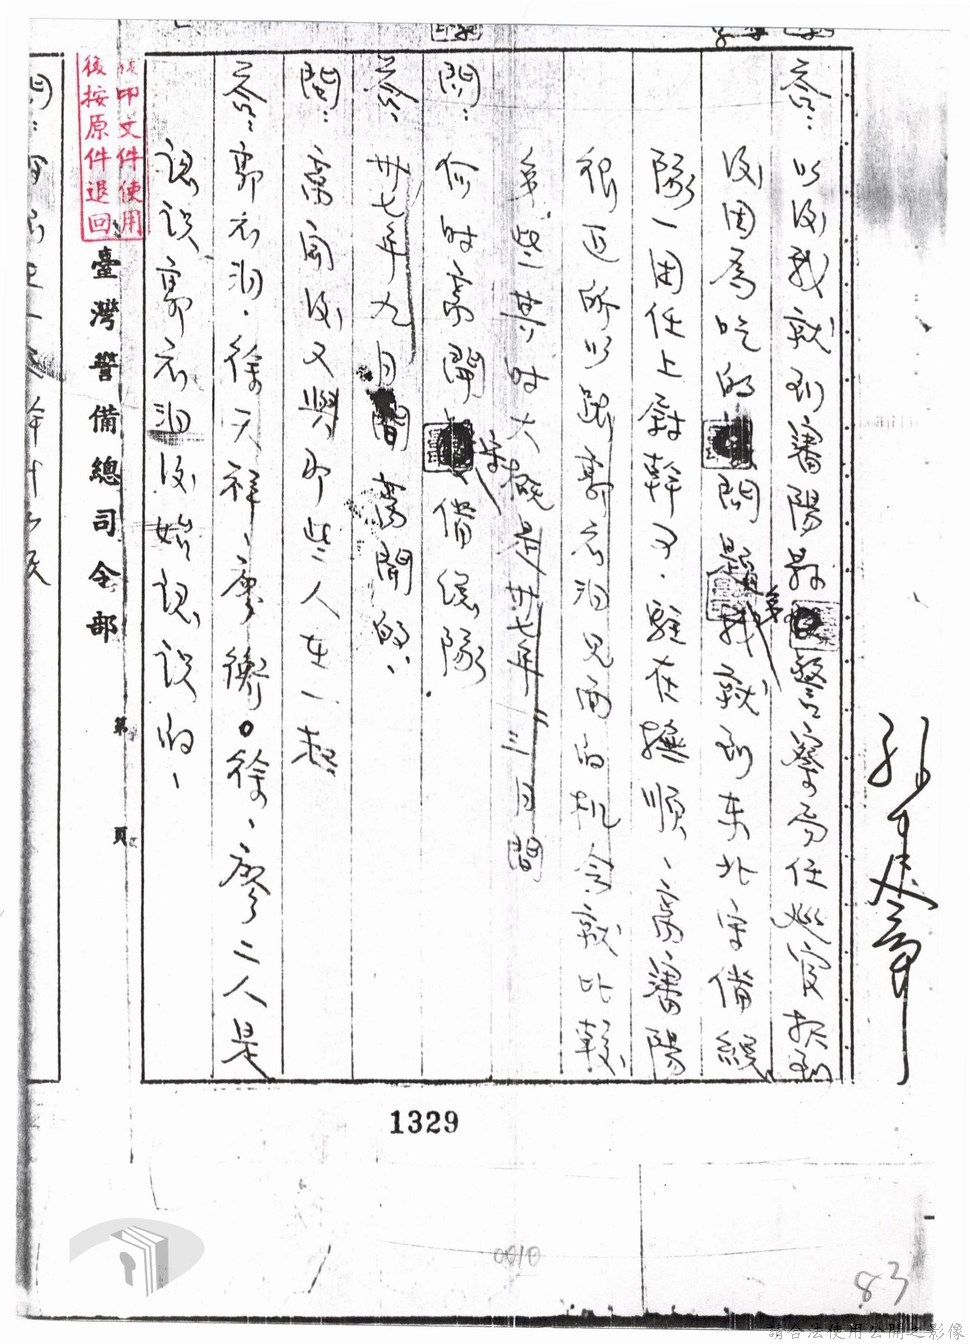 答: 以後我就到瀋陽縣警察局任巡官報到
後因為吃的問題我就到东北守備縂
隊一团任上尉幹事、駐在撫順、离瀋陽
很近所以跟郭衣洞見面的机会就比較
多些其时大概是卅七年二三月間
問: 何时离開守備縂隊
答: 卅七年九月間离開的、
問: 离開後又與那些人在一起
答: 郭衣洞、徐天祥、廖衡。徐、廖二人是
認識郭衣洞後始認識的、
臺灣警備總司令部
第 頁
印文件使用
後按原件退回
1329
0010
83
請合法使用公開之影像